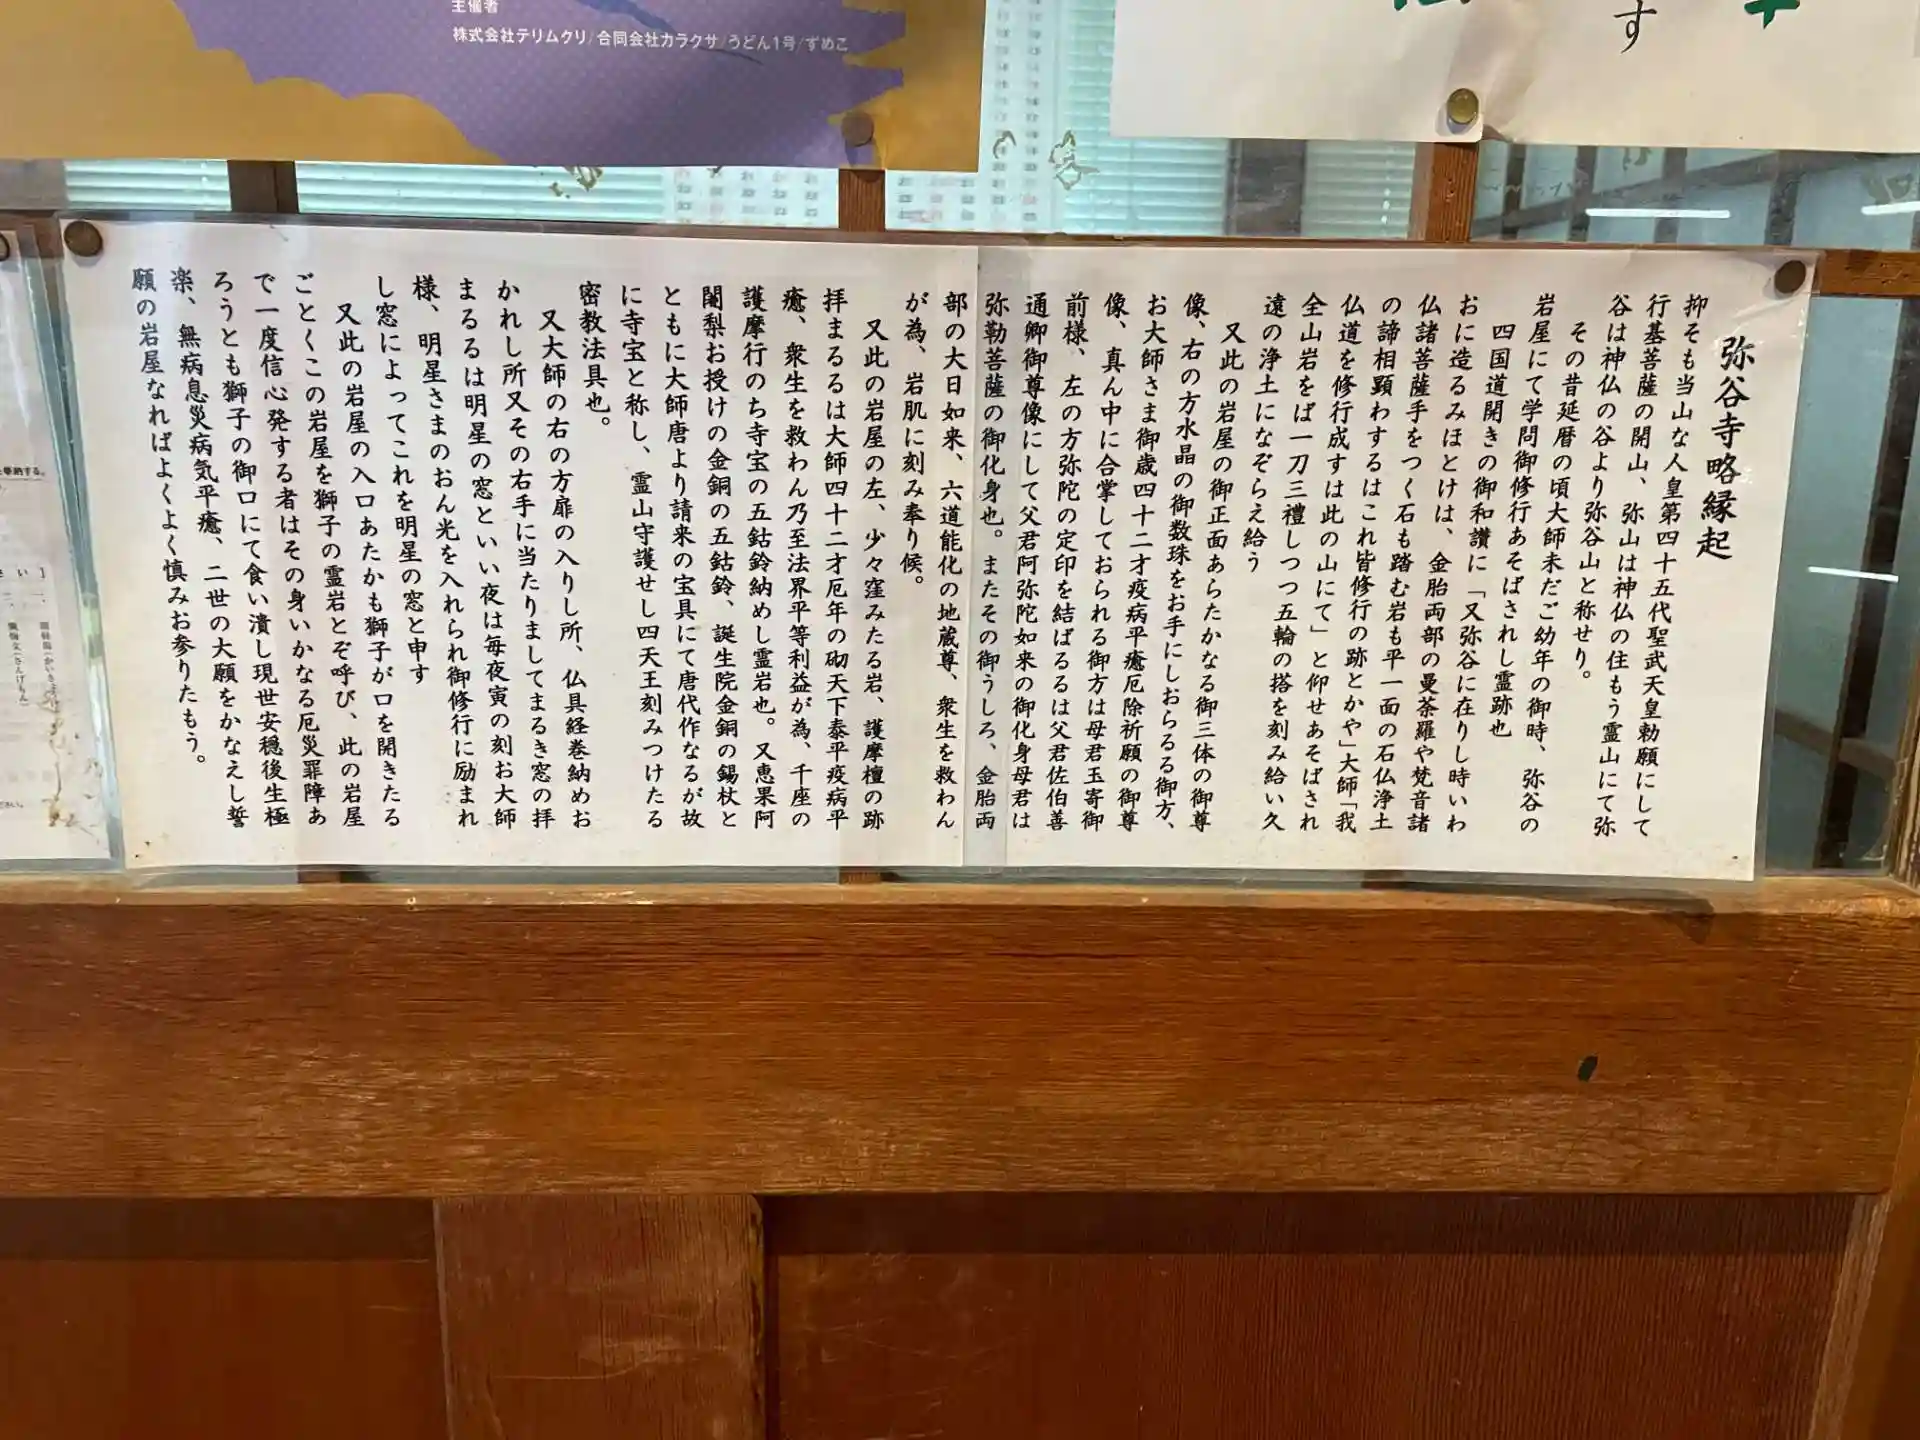 主催者
株式会社テリムクリ/合同会社カラクサ/うどん1号/ずめこ
す
弥谷寺略縁起
抑そも当山な人皇第四十五代聖武天皇勅願にして
行基菩薩の開山、弥山は神仏の住もう霊山にて弥
谷は神仏の谷より弥谷山と称せり。
その昔延暦の頃大師未だご幼年の御時、弥谷の
岩屋にて学問御修行あそばされし霊跡也
四国道開きの御和讃に「又弥谷に在りし時いわ
おに造るみほとけは、金胎両部の曼荼羅や梵音諸
仏諸菩薩手をつく石も踏む岩も平一面の石仏浄土
の諦相顕わするはこれ皆修行の跡とかや」大師「我
仏道を修行成すは此の山にて」と仰せあそばされ
全山岩をば一刀三禮しつつ五輪の搭を刻み給い久
遠の浄土になぞらえ給う
又此の岩屋の御正面あらたかなる御三体の御尊
像、右の方水晶の御数珠をお手にしおらるる御方、
お大師さま御歳四十二才疫病平癒厄除祈願の御尊
像、真ん中に合掌しておられる御方は母君玉寄御
前様、左の方弥陀の定印を結ばるるは父君佐伯善
通卿御尊像にして父君阿弥陀如来の御化身母君は
弥勒菩薩の御化身也。またその御うしろ、金胎両
部の大日如来、六道能化の地蔵尊、衆生を救わん
が為、岩肌に刻み奉り候。
又此の岩屋の左、少々窪みたる岩、護摩檀の跡
拝まるるは大師四十二才厄年の砌天下泰平疫病平
癒、衆生を救わん乃至法界平等利益が為、千座の
護摩行のち寺宝の五鈷鈴納めし霊岩也。又恵果阿
闍梨お授けの金銅の五鈷鈴、誕生院金銅の錫杖と
ともに大師唐より請来の宝具にて唐代作なるが故
に寺宝と称し、霊山守護せし四天王刻みつけたる
密教法具也。
又大師の右の方扉の入りし所、仏具経巻納めお
かれし所又その右手に当たりましてまるき窓の拝
まるるは明星の窓といい夜は毎夜寅の刻お大師
様、明星さまのおん光を入れられ御修行に励まれ
し窓によってこれを明星の窓と申す
又此の岩屋の入口あたかも獅子が口を開きたる
ごとくこの岩屋を獅子の霊岩とぞ呼び、此の岩屋
で一度信心発する者はその身いかなる厄災罪障あ
ろうとも獅子の御口にて食い潰し現世安穏後生極
楽、無病息災病気平癒、二世の大願をかなえし誓
願の岩屋なればよくよく慎みお参りたもう。